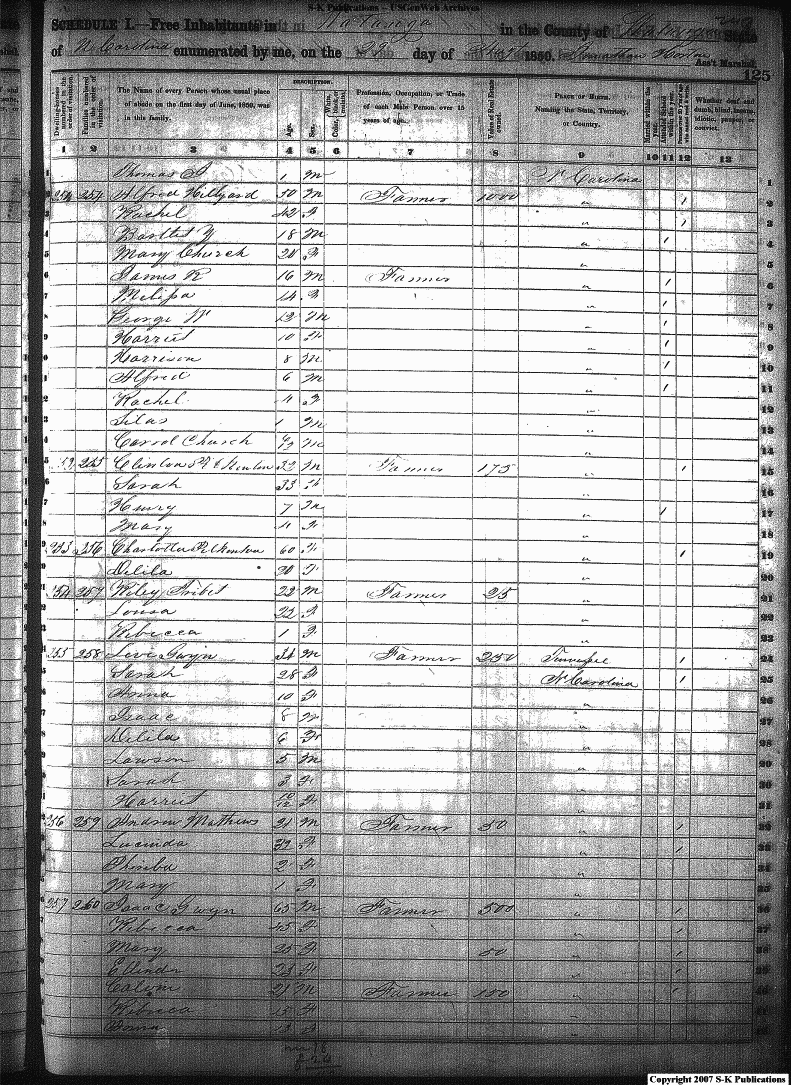 S-K Publications - USGenWeb Archives
SCHEDULE I.—Free Inhabitants in Watauga in the County of State
of N Carolina enumerated by me, on the 22 day of 1850. Jonathan Horton Ass't Marshal.
125
Dwelling-houses numbered in the order of visitation.
Families numbered in the order of visitation.
The Name of every Person whose usual place of abode on the first day of June, 1850, was in this family.
DESCRIPTION.
Age.
Sex.
White, black, or mulatto.
Color
Profession, Occupation, or Trade of each Male Person over 15 years of age.
Value of Real Estate owned.
PLACE OF BIRTH. Naming the State, Territory, or Country.
Married within the year.
Attended School within the year.
Persons over 20 y'rs of age who cannot read & write.
Whether deaf and dumb, blind, insane, idiotic, pauper, or convict.
1 2 3 4 5 6 7 8 9 10 11 12 13
1 Thomas 1 m N Carolina 1
257 Alfred Hillyard 50 m Farmer 1000 " / 2
3 Rachel 42 f " / 3
4 Bartlet Y 18 m " / 4
5 Mary Church 20 f " 5
6 James R 16 m Farmer " / 6
7 Melissa 14 f " / 7
8 George W 12 m " / 8
9 Harriet 10 f " / 9
10 Harrison 8 m " / 10
11 Alfred 6 m " / 11
12 Rachel 4 f " 12
13 Silas 1 m " 13
14 Carrol Church m " 14
255 Clinton Pilkenton 32 m Farmer 175 " / 15
16 Sarah 33 f " 16
17 Henry 7 m " / 17
18 Mary 4 f " 18
253 256 Charlotte Pilkenton 60 f " / 19
20 Delila 30 f " 20
254 257 Wiley Tribet 22 m Farmer 25 " 21
22 Louisa 22 f " 22
23 Rebecca 1 f " 23
255 258 Levi Gwyn 34 m Farmer 250 Tennessee / 24
25 Sarah 28 f N Carolina / 25
26 Anna 10 f " 26
27 Isaac 8 m " 27
28 Delila 6 f " 28
29 Lawson 5 m " 29
30 Sarah 3 f " 30
31 Harriet 10/12 f " 31
256 259 Andrew Mathews 21 m Farmer 50 " / 32
33 Lucinda 32 f " / 33
34 2 f " 34
35 Mary 1 f " 35
257 260 Isaac Gwyn 65 m Farmer 500 " / 36
37 Rebecca 45 f " / 37
38 Mary 25 f 50 " / 38
39 Ellender 23 f " / 39
40 Calvin 21 m Farmer 150 " / 40
41 Rebecca 15 f " 41
42 Anna 13 f " 42
m 18
f 24
Copyright 2007 S-K Publications